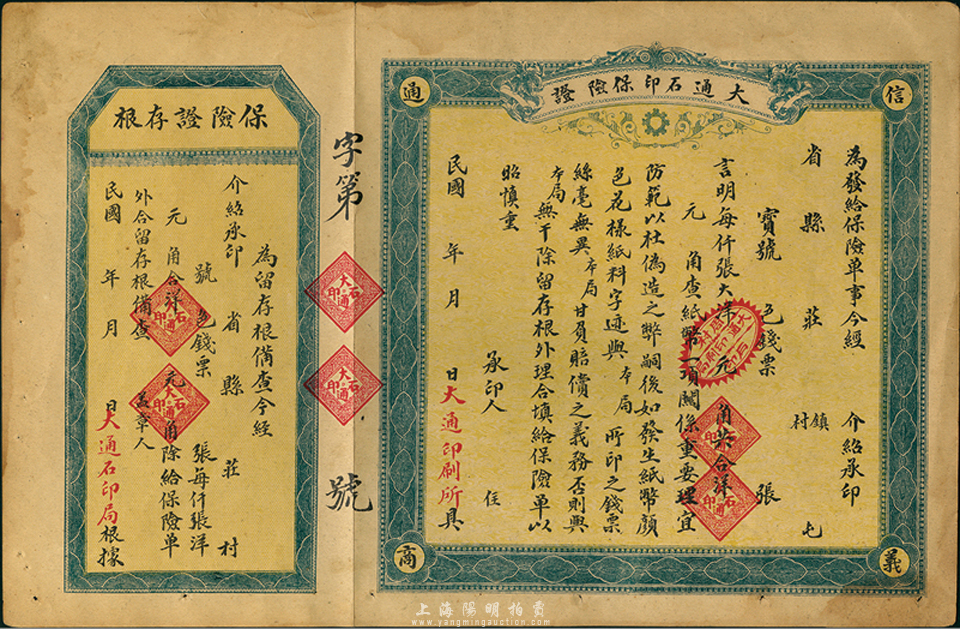 大通石印保險證
信
通
義
商
為發給保險單事今經
介紹承印
省 縣 莊 鎮村
寶號 色錢票 張
言明每仟張大洋 元 角共合洋
元 角查紙幣一項關係重要理宜
防範以杜偽造之弊嗣後如發生紙幣顏
色花樣紙料字迹與本局所印之錢票
絲毫無異本局甘負賠償之義務否則與
本局無干除留存根外理合填給保險單以
昭慎重
承印人 住
民國 年 月 日大通印刷所具
字第 號
大通石印
大通石印
保險證存根
為留存根備查今經
介紹承印 省 縣 莊 村
號 色錢票 張每仟張洋
元 角合洋 元 角除給保險單
外合留存根備查 蓋章人
民國 年 月 日大通石印局根據
大通石印
大通石印
大通石印
大通石印
上海陽明拍賣
www.yangmingauction.com